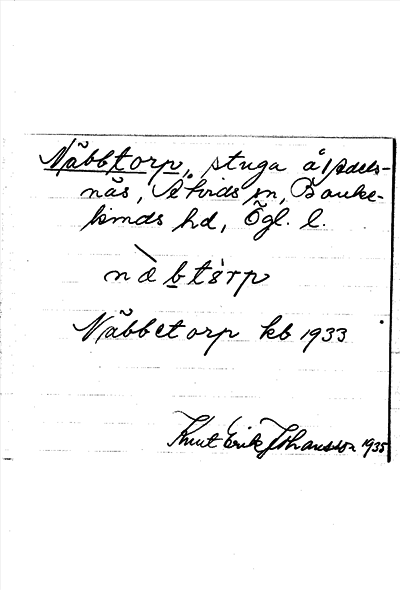 Näbbtorp, stuga å Adels-
näs, Åtvids sn, Banke-
kinds hd, Ögl. l.
nàbtòrp
Näbbetorp kb 1933
Knut Erik Johansson 1935